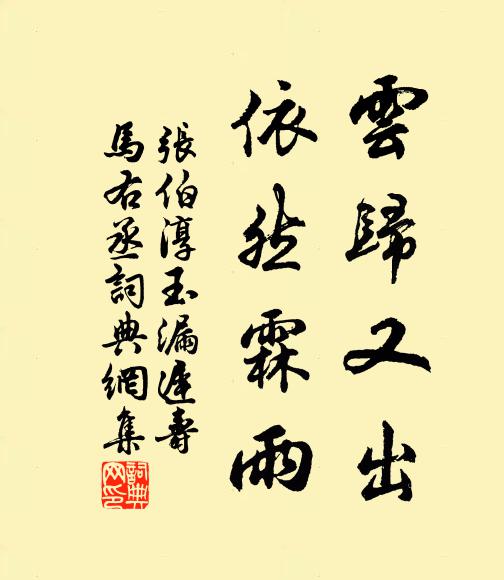 雲歸又出
依然霖雨
張伯淳玉漏遲壽
馬右丞詞典網集
詞典網印